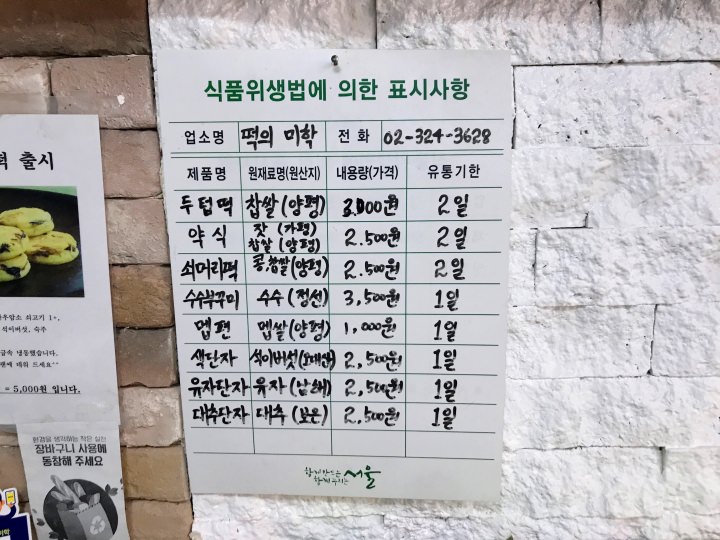 식품위생법에 의한 표시사항
업소명 떡의 미학 전 화 02-324-3628
제품명 원재료명(원산지) 내용량(가격) 유통기한
두텁떡 찹쌀(양평) 3.000원 2일
약식 잣 (가평) 찹쌀 (양평) 2.500원 2일
쇠머리떡 콩,찹쌀(양평) 2.500원 2일
수수부꾸미 수수(정선) 3,500원 1일
멥편 멥쌀(양평) 1,000원 1일
색단자 석이버섯(오대산) 2,500원 1일
유자단자 유자(남해) 2,500원 1일
대추단자 대추(보은) 2,500원 1일
함께 만드는 함께 누리는 서울
출시
쇠고기 1+,
석이버섯, 숙주
급속 냉동했습니다.
데워 드세요^^
= 5,000원 입니다.
환경을 생각하는 작은 실천
장바구니 사용에
동참해 주세요